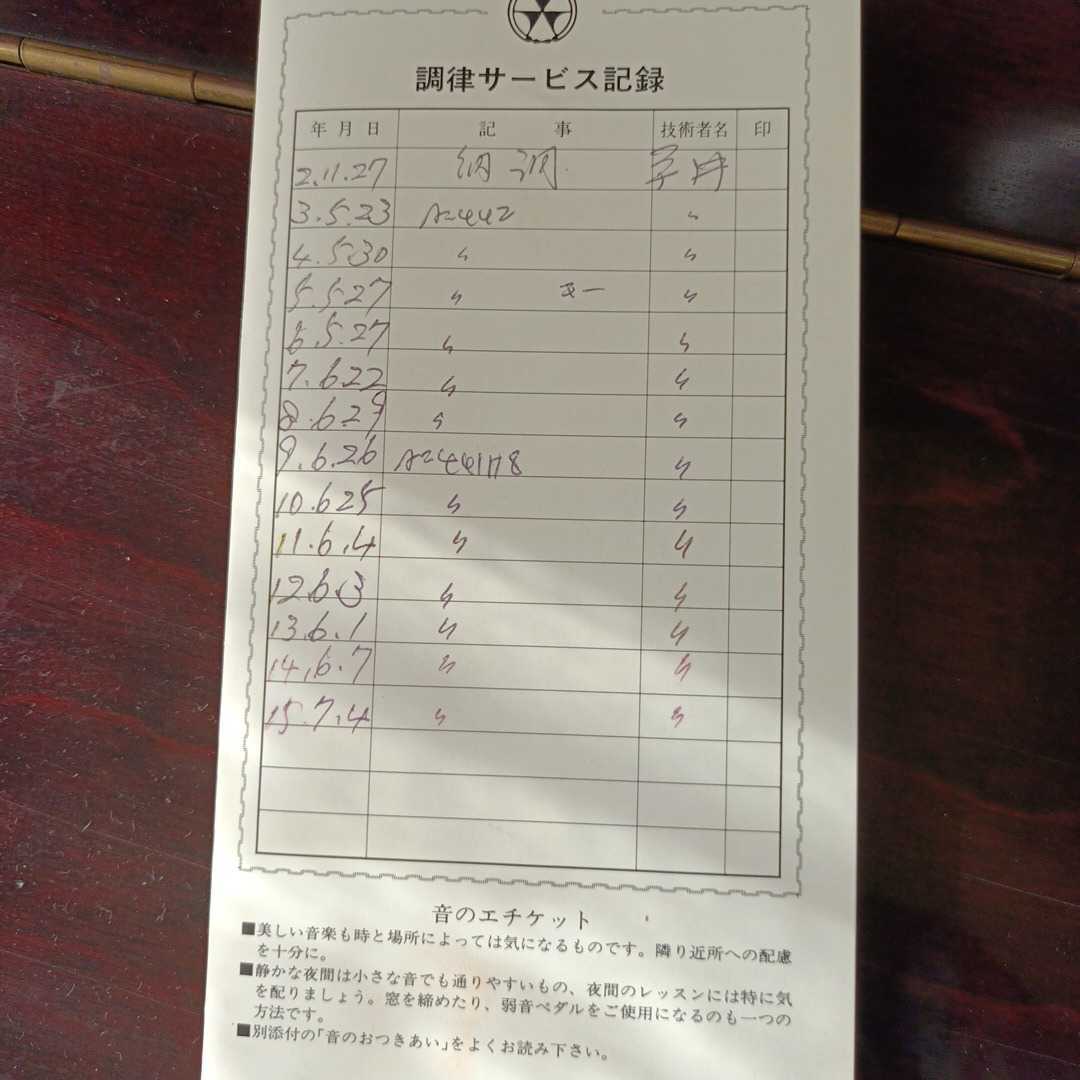 調律サービス記録
年月日 記事 技術者名 印
2.11.27 納調
3.5.23 A=442 〃
4.5.30 〃 〃
5.5.27 〃 〃
6.5.27 〃 〃
7.6.22 〃 〃
8.6.29 〃 〃
9.6.26 〃
10.6.25 〃 〃
11.6.4 〃 〃
12.6.3 〃 〃
13.6.1 〃 〃
14.6.7 〃 〃
15.7.4 〃 〃
音のエチケット
■美しい音楽も時と場所によっては気になるものです。隣り近所への配慮
を十分に。
■静かな夜間は小さな音でも通りやすいもの、夜間のレッスンには特に気
を配りましょう。窓を締めたり、弱音ペダルをご使用になるのも一つの
方法です。
■別添付の「音のおつきあい」をよくお読み下さい。